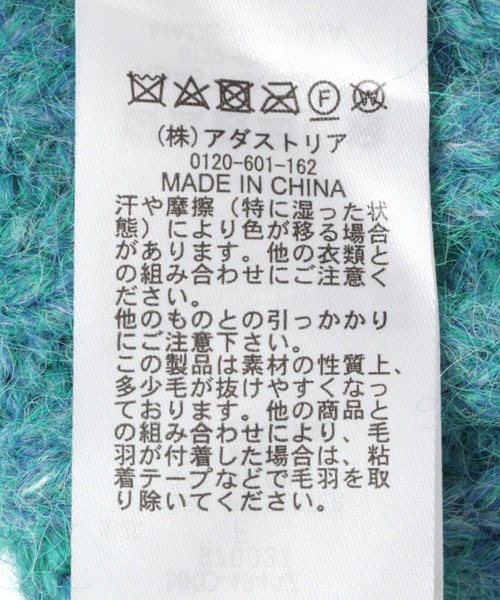 F W
(株)アダストリア
0120-601-162
MADE IN CHINA
汗や摩擦（特に湿った状
態）により色が移る場合
があります。他の衣類と
の組み合わせにご注意く
ださい。
他のものとの引っかかり
にご注意下さい。
この製品は素材の性質上、
多少毛が抜けやすくなっ
ております。他の商品と
の組み合わせにより、毛
羽が付着した場合は、粘
着テープなどで毛羽を取
り除いてください。